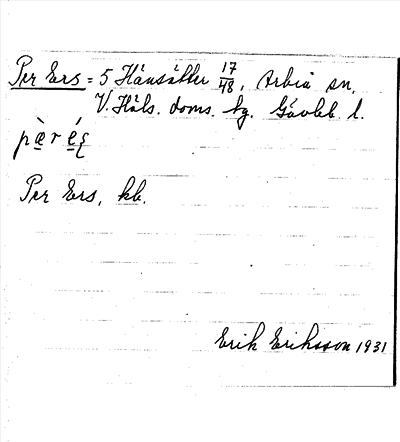 Per Ers = 5 Hånsätter 17/48, Arbrå sn,
V. Häls. doms. hg. Gävleb. l.
pær
Per Ers, kb.
Erik Eriksson 1931